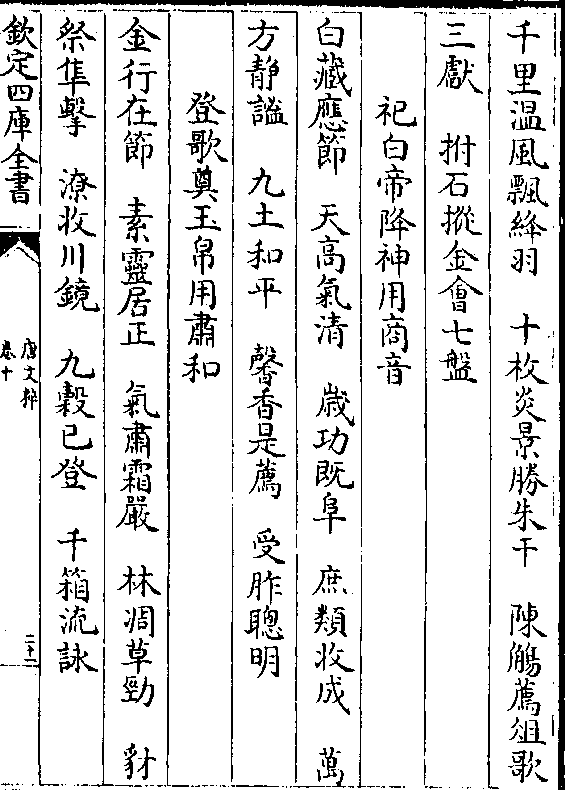 千里温風飄絳羽　十枚炎景勝朱干　陳觴薦俎歌
三獻　拊石摐金會七盤
祀白帝降神用商音
白藏應節　天高氣清　歲功既阜　庶類收成　萬
方静謐　九土和平　馨香是薦　受胙聰明
登歌奠玉帛用肅和
金行在節　素靈居正　氣肅霜嚴　林凋草勁　豺
祭隼擊　潦收川鏡　九穀已登　千箱流詠
欽定四庫全書
唐文粹
卷十
二十二